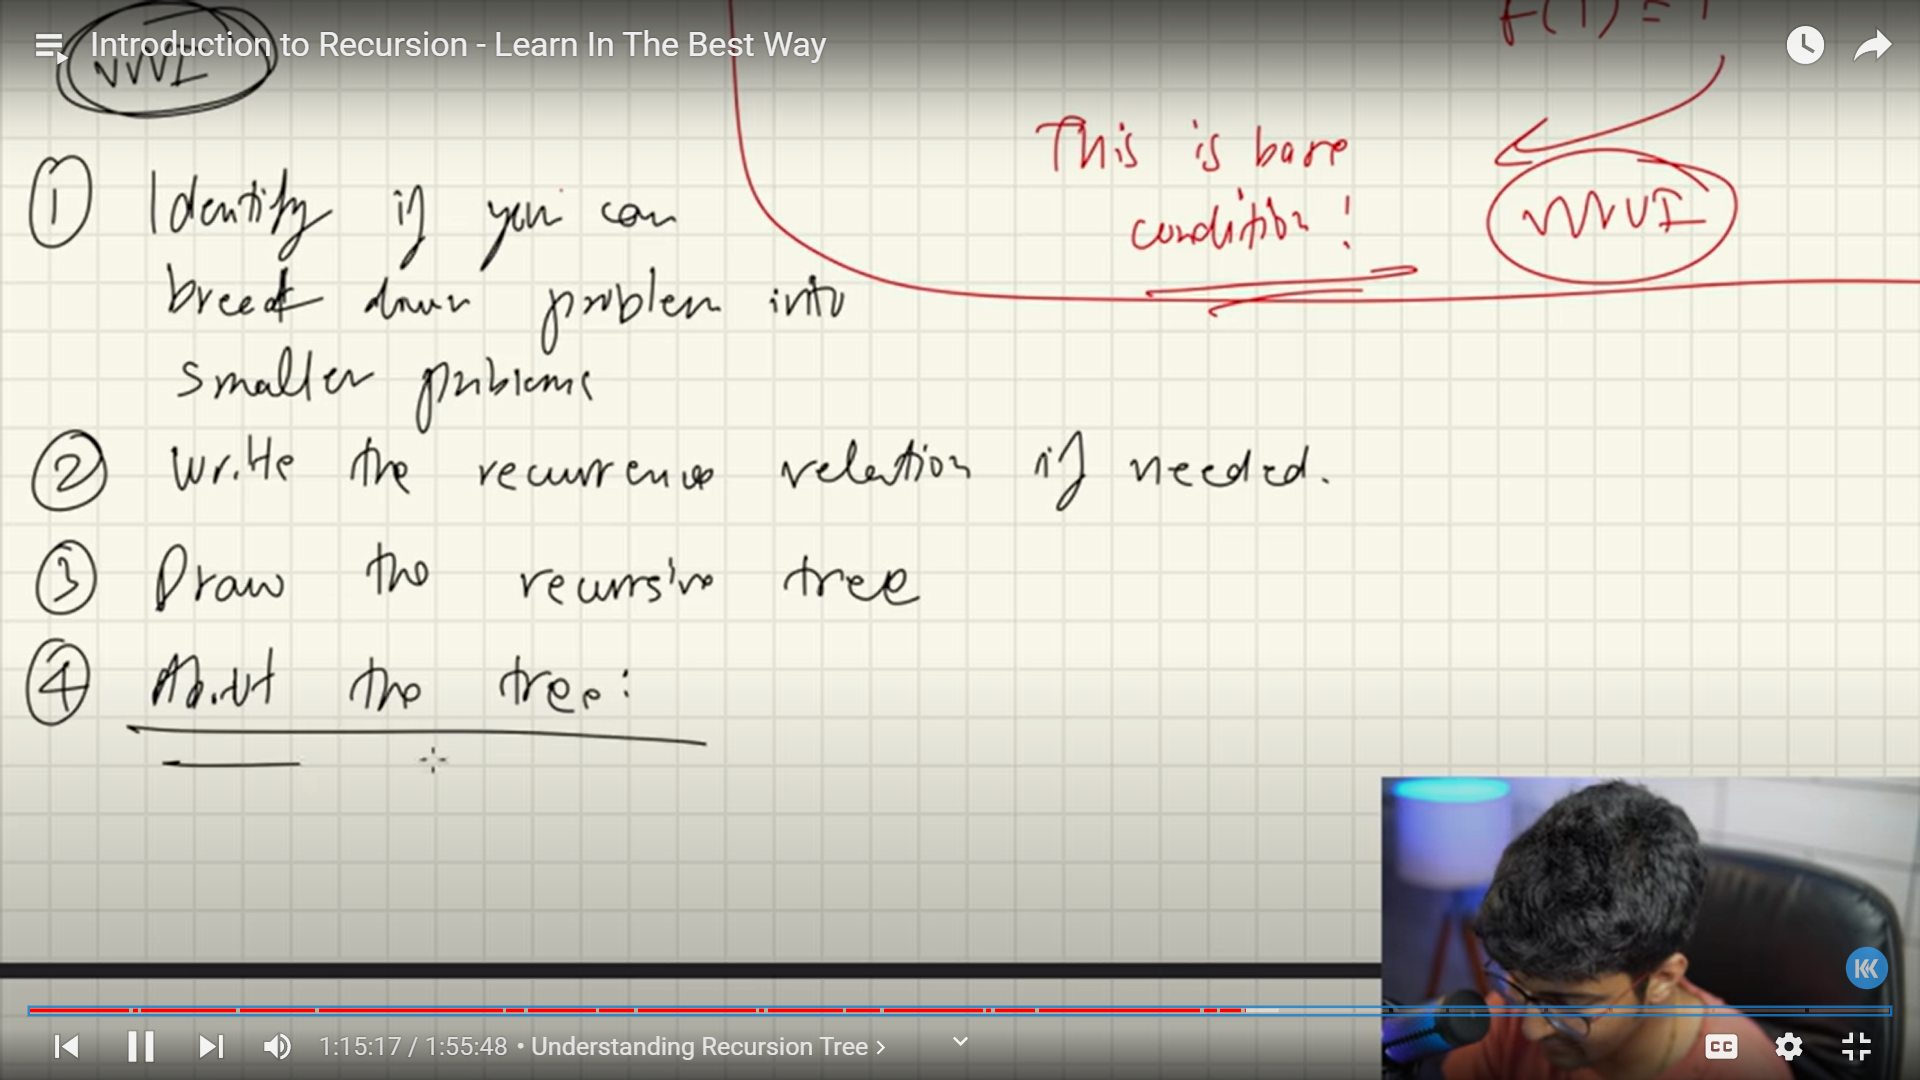 Introduction to Recursion - Learn In The Best Way
VVVI
f(1) = 1
This is base
condition!
VVVVI
① Identify if you can
break down problem into
smaller problems
② Write the recurrence relation if needed.
③ Draw the recursive tree
④ About the tree:
1:15:17 / 1:55:48 • Understanding Recursion Tree >
CC